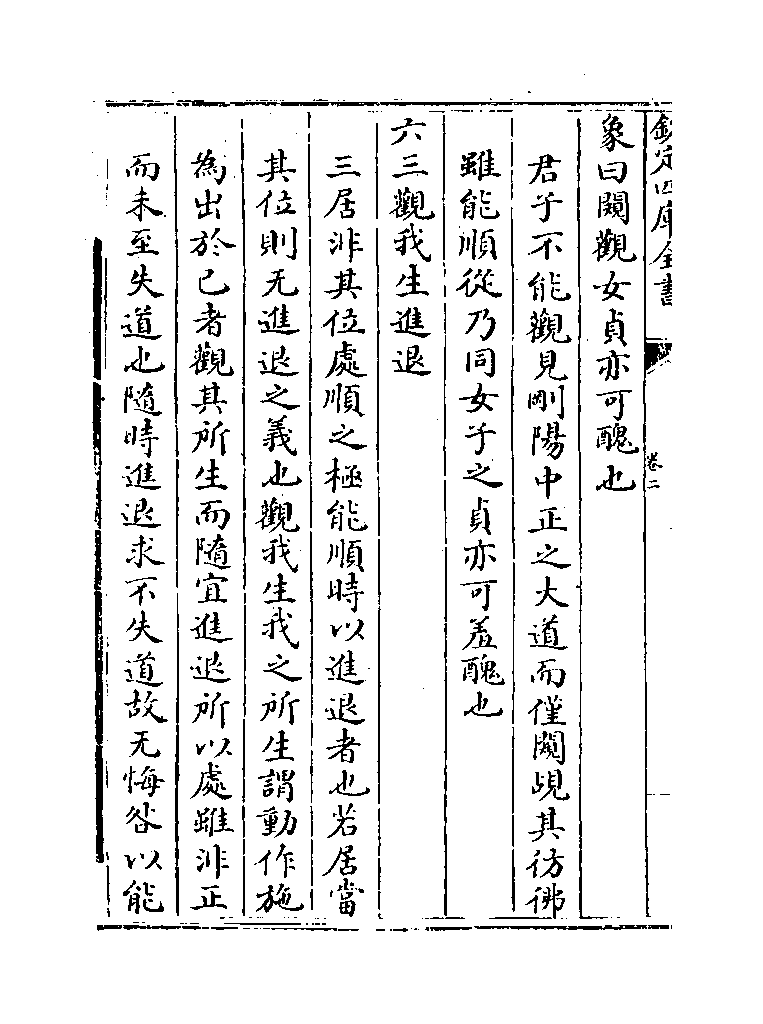 欽定四庫全書
卷二
象曰闚觀女貞亦可醜也
君子不能觀見剛陽中正之大道而僅闚覘其彷彿
雖能順從乃同女子之貞亦可羞醜也
六三觀我生進退
三居非其位處順之極能順時以進退者也若居當
其位則无進退之義也觀我生我之所生謂動作施
為出於己者觀其所生而隨宜進退所以處雖非正
而未至失道也隨時進退求不失道故无悔咎以能